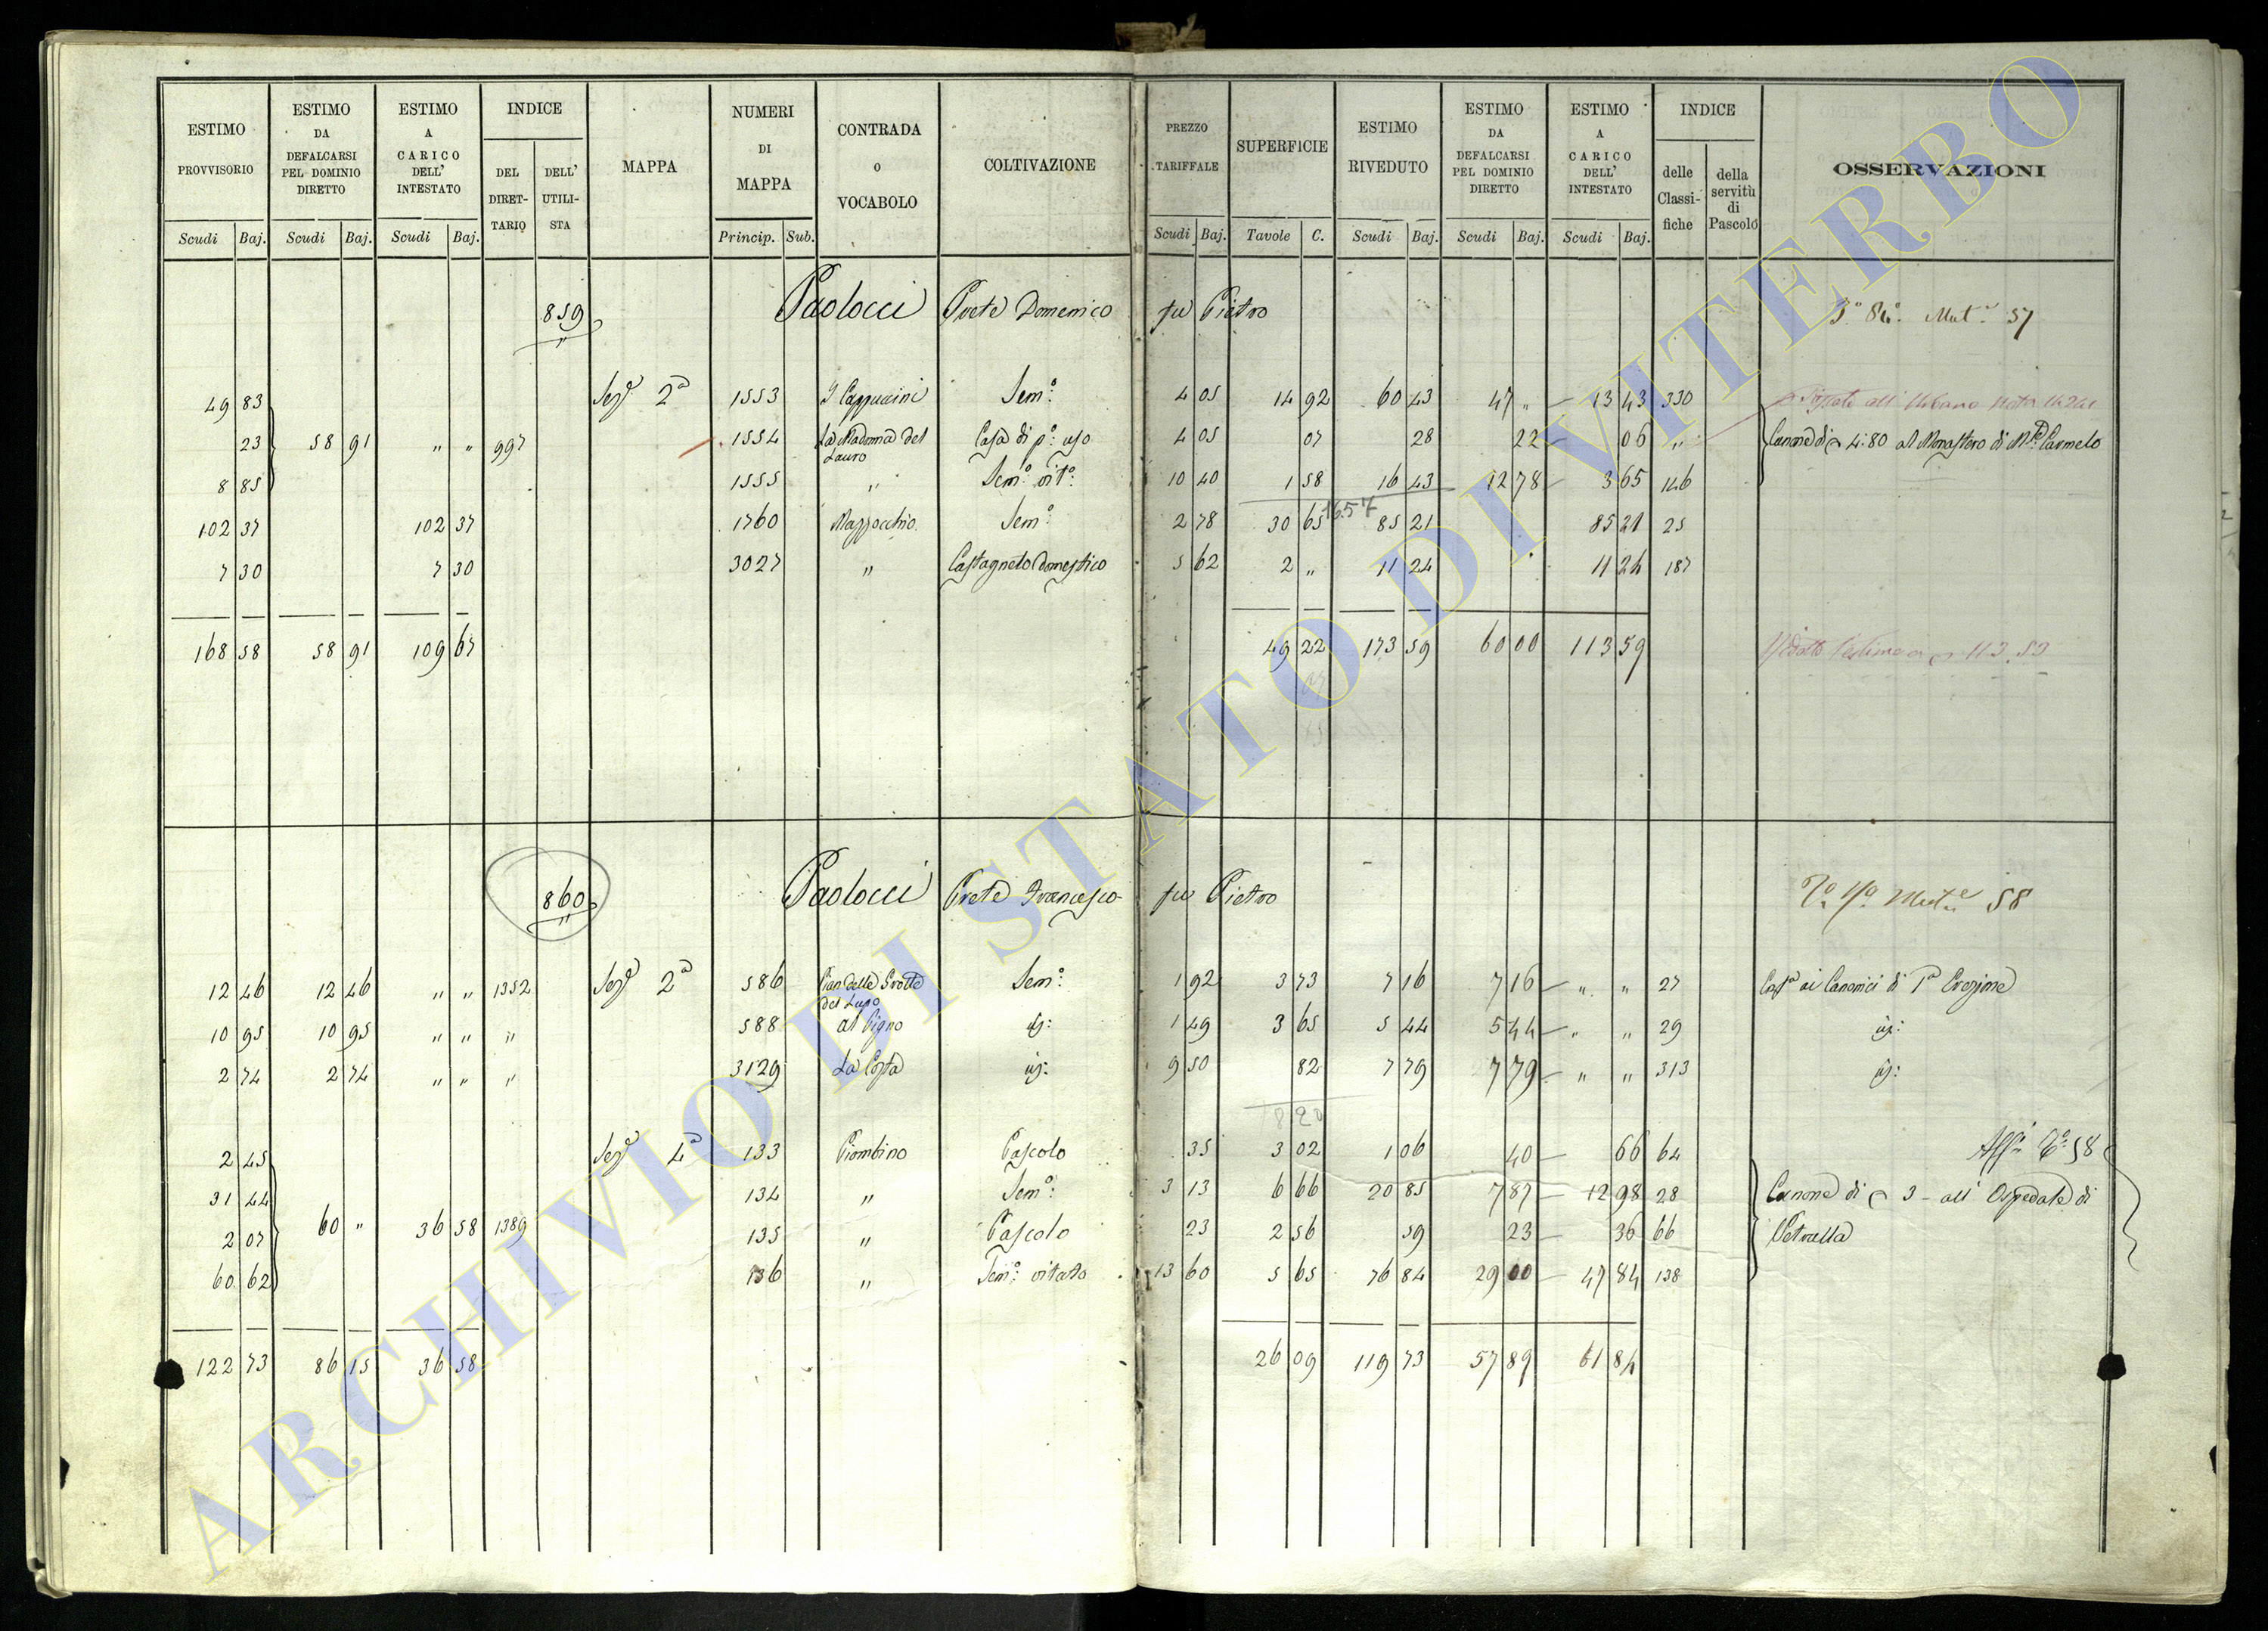 ESTIMO PROVVISORIO | ESTIMO DA DEFALCARSI PEL DOMINIO DIRETTO | ESTIMO A CARICO DELL' INTESTATO | INDICE | MAPPA | NUMERI DI MAPPA | CONTRADA o VOCABOLO | COLTIVAZIONE | PREZZO TARIFFALE | SUPERFICIE | ESTIMO RIVEDUTO | ESTIMO DA DEFALCARSI PEL DOMINIO DIRETTO | ESTIMO A CARICO DELL' INTESTATO | INDICE | OSSERVAZIONI
DEL DIRET-TARIO | DELL' UTILI-STA | delle Classi-fiche | della servitù di Pascolo
Scudi Baj. | Scudi Baj. | Scudi Baj. | Princip. Sub. | Scudi Baj. | Tavole C. | Scudi Baj. | Scudi Baj. | Scudi Baj.
859 Paolocci Prete Domenico fu Pietro Mut. 57
49 83 Sez.e 2a 1553 I Cappuccini Sem.o 4 05 14 92 60 43 47 „ 13 43 330
23 58 91 „ „ 997 1554 La Madonna del Lauro Casa di p.o uso 4 05 07 28 22 06 „ Canone di 4:80 al Monastero di M.te Carmelo
8 85 1555 „ Sem.o vit.o 10 40 1 58 16 43 12 78 3 65 146
1657
102 37 102 37 1760 Mazzocchio Sem.o 2 78 30 65 85 21 85 21 25
7 30 7 30 3027 „ Castagneto Domestico 5 62 2 „ 11 24 11 24 187
168 58 58 91 109 67 49 22 173 59 60 00 113 59 113.59
860 Paolocci Prete Francesco fu Pietro 58
12 46 12 46 „ „ 1352 Sez.e 2a 586 Pian delle Grotte del Lupo Sem.o 1 92 3 73 7 16 7 16 „ „ 27 ai Canonici di 1a Erezione
10 95 10 95 „ „ „ 588 al Pigno id: 1 49 3 65 5 44 5 44 „ „ 29 id:
2 74 2 74 „ „ „ 3129 La Costa id: 9 50 82 7 79 7 79 „ „ 313 id:
8 20
2 45 Sez.e 4a 133 Piombino Pascolo 35 3 02 1 06 40 66 64 58
31 44 134 „ Sem.o 3 13 6 66 20 85 7 87 12 98 28 Canone di 3 - all' Ospedale di
2 07 60 „ 36 58 1389 135 „ Pascolo 23 2 56 59 23 36 66 Vetralla
60 62 136 „ Sem.o vitato 13 60 5 65 76 84 29 00 47 84 138
122 73 86 15 36 58 26 09 119 73 57 89 61 84
ARCHIVIO DI STATO DI VITERBO